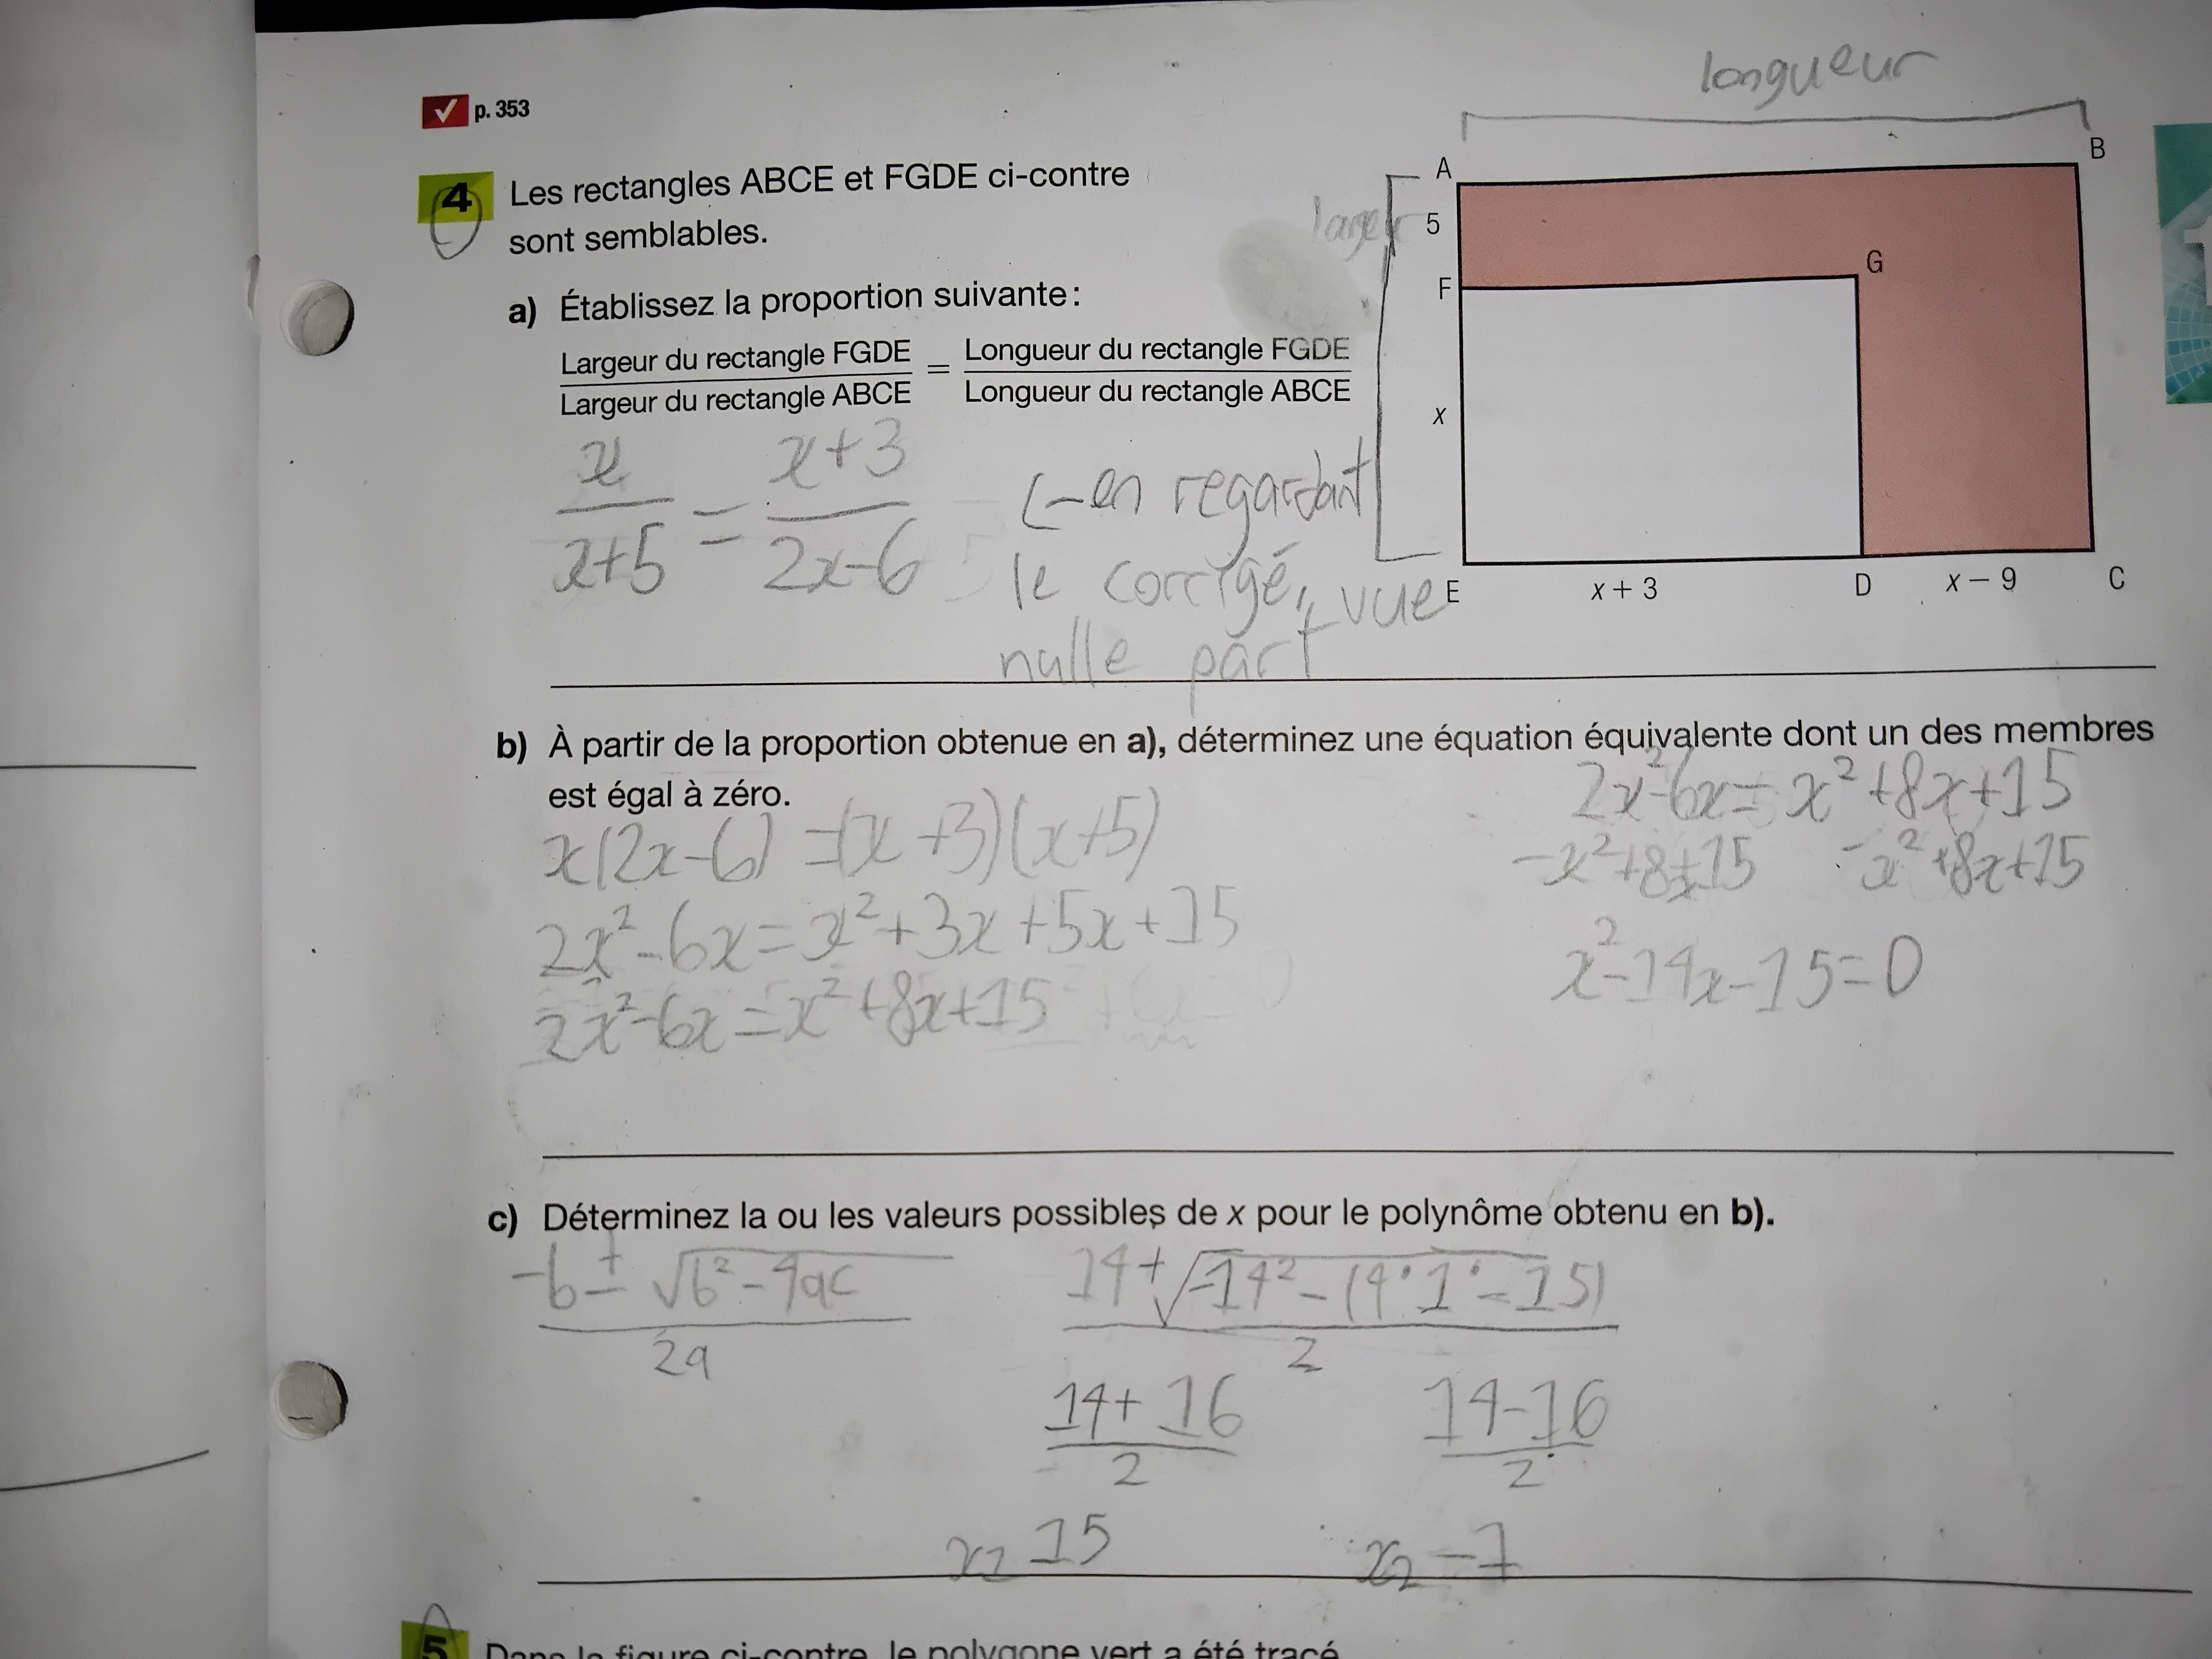 longueur
p. 353
4 Les rectangles ABCE et FGDE ci-contre
sont semblables.
a) Établissez la proportion suivante :
Largeur du rectangle FGDE / Largeur du rectangle ABCE = Longueur du rectangle FGDE / Longueur du rectangle ABCE
x / x+5 = x+3 / 2x-6
<-en regardant
le corrigé, vue
nulle part
A
B
5
F
G
x
E
x + 3
D
x – 9
C
b) À partir de la proportion obtenue en a), déterminez une équation équivalente dont un des membres
est égal à zéro.
x(2x-6) =(x+3)(x+5)
2x²-6x=x²+3x+5x+15
2x²-6x=x²+8x+15
2x²-6x=x²+8x+15
-x²+8x+15 -x²+8x+15
x²-14x-15=0
c) Déterminez la ou les valeurs possibles de x pour le polynôme obtenu en b).
-b±√b²-4ac / 2a
14+√-14²-(4·1·-15) / 2
14+16 / 2
14-16 / 2
x1 15
x2 -1
5 Dans la figure ci-contre, le polygone vert a été tracé